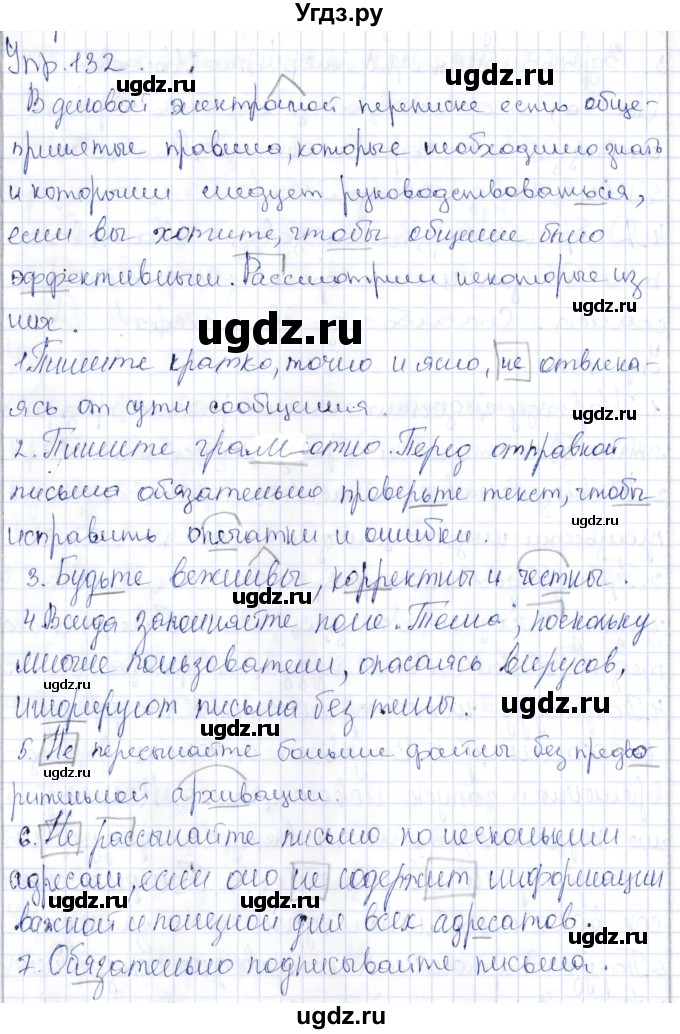 Угдз.ру
Упр. 132.
ugdz.ru ugdz.ru
В деловой электронной переписке есть обще-
ugdz.ru
принятые правила, которые необходимо знать
и которыми следует руководствоваться,
ugdz.ru
если вы хотите, чтобы общение было
эффективными. Рассмотрим некоторые из
них.
ugdz.ru
1. Пишите кратко, точно и ясно, не отвлека-
ugdz.ru
ясь от сути сообщения.
2. Пишите грамотно. Перед отправкой
ugdz.ru
письма обязательно проверьте текст, чтобы
ugdz.ru
исправить опечатки и ошибки.
3. Будьте вежливы, корректны и честны.
ugdz.ru
4. Всегда заполняйте поле. Тема, поскольку
ugdz.ru
многие пользователи, опасаясь вирусов,
ugdz.ru
игнорируют письма без темы.
ugdz.ru
5. Не пересылайте большие файлы без предва-
рительной архивации.
ugdz.ru
6. Не рассылайте письмо по нескольким
адресам, если оно не содержит информации
ugdz.ru ugdz.ru
важной и полезной для всех адресатов.
7. Обязательно подписывайте письма.
ugdz.ru